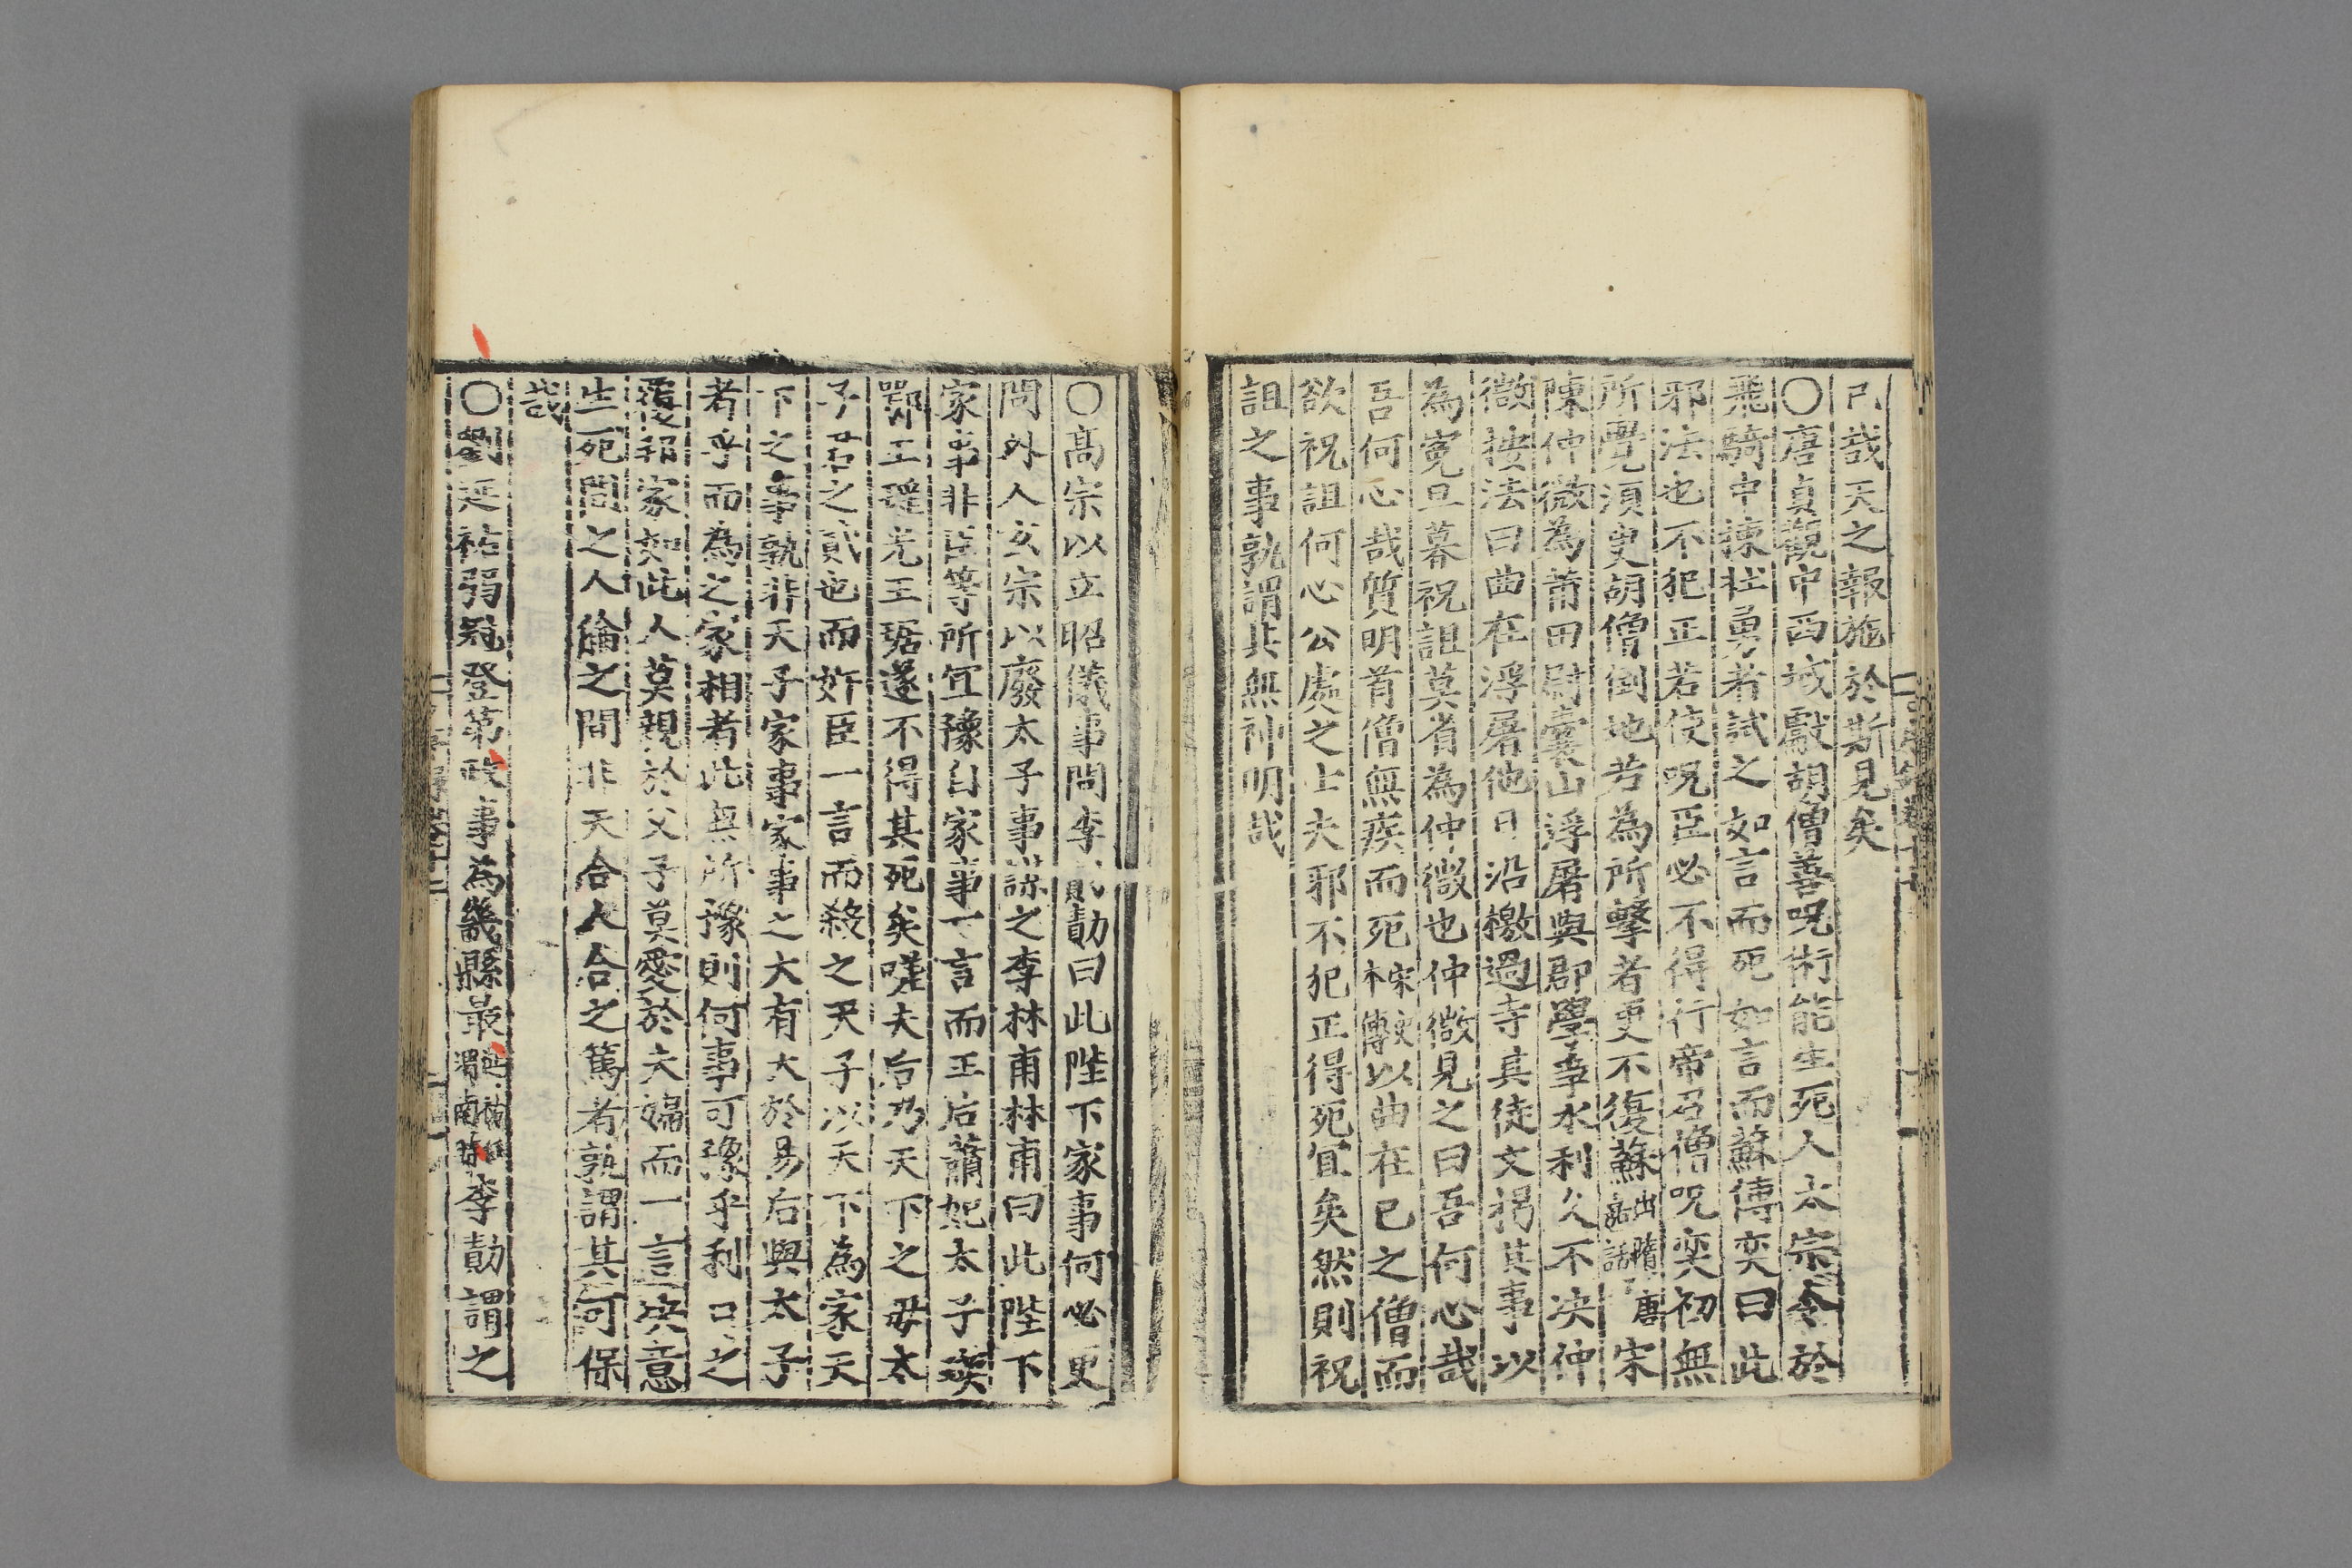 哉天之報施於斯見矣
〇唐貞觀中西域獻胡僧善呪術能生死人太宗令於
飛騎中揀壯勇者試之如言而死如言而蘇傳奕曰此
邪法也不犯正若使呪臣必不得行帝召僧呪奕初無
所覺須臾胡僧倒地若為所擊者更不復蘇出隋唐嘉話宋
陳仲微為莆田尉囊山浮屠與郡學爭水利久不决仲
微按法曰曲在浮屠他日沿檄過寺其徒文揭其事以
為寃旦暮祝詛莫省為仲微也仲微見之曰吾何心哉
吾何心哉質明首僧無疾而死宋史本傳以曲在已之僧而
欲祝詛何心公處之士夫邪不犯正得死宜矣然則祝
詛之事孰謂其無神明哉
〇高宗以立昭儀事問李勣勣曰此陛下家事何必更
問外人玄宗以廢太子事謀之李林甫林甫曰此陛下
家事非臣等所宜豫自家事一言而王后蕭妃太子瑛
鄂王瑶光王琚遂不得其死矣嗟夫后乃天下之母太
子君之貳也而奸臣一言而殺之天子以天下為家天
下之事孰非天子家事家事之大有大於易后與太子
者乎而為之家相者此無所豫則何事可豫乎利口之
覆邦家如此人莫親於父子莫愛於夫婦而一言决意
生死間之人倫之間非天合人合之篤者孰謂其可保
哉
〇劉延祐弱冠登第政事為畿縣最延祐渭南尉李勣謂之